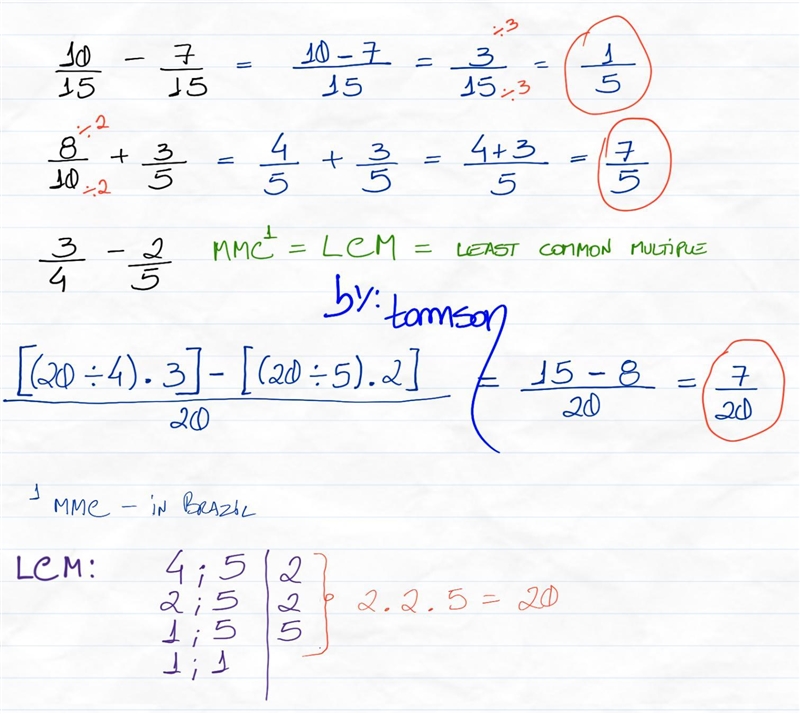 10/15 - 7/15 = 10-7/15 = 3÷3/15÷3 = 1/5
8÷2/10÷2 + 3/5 = 4/5 + 3/5 = 4+3/5 = 7/5
3/4 - 2/5 MMC¹ = LCM = LEAST COMMON MULTIPLE
by: tomson
[(20÷4).3]-[(20÷5).2]/20 = 15-8/20 = 7/20
¹ MMC - IN BRAZIL
LCM: 4;5|2
2;5|2 } 2.2.5=20
1;5|5
1;1|